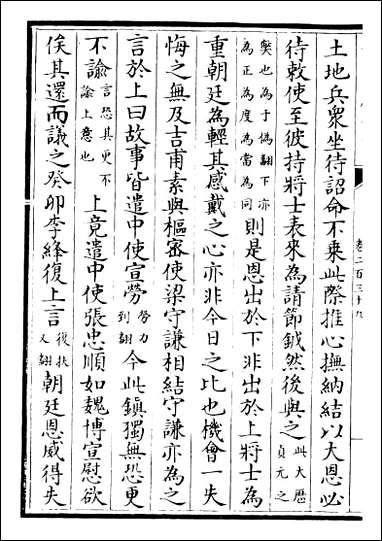 土地兵衆坐待詔命不乗此際推心撫納結以大恩必
待敕使至彼持將士表來為請節鉞然後與之此大歷貞元之
樊也為于偽翻下亦為正為度為當為同則是恩出於下非出於上將士為
重朝廷為輕其感戴之心亦非今日之比也機會一失
悔之無及吉甫素與樞密使梁守謙相結守謙亦為之
言於上曰故事皆遣中使宣勞勞力到翻今此鎮獨無恐更
不諭言恐其更不諭上意也上竟遣中使張忠順如魏博宣慰欲
俟其還而議之癸卯李絳復上言復扶又翻朝廷恩威得失
卷二百三十九